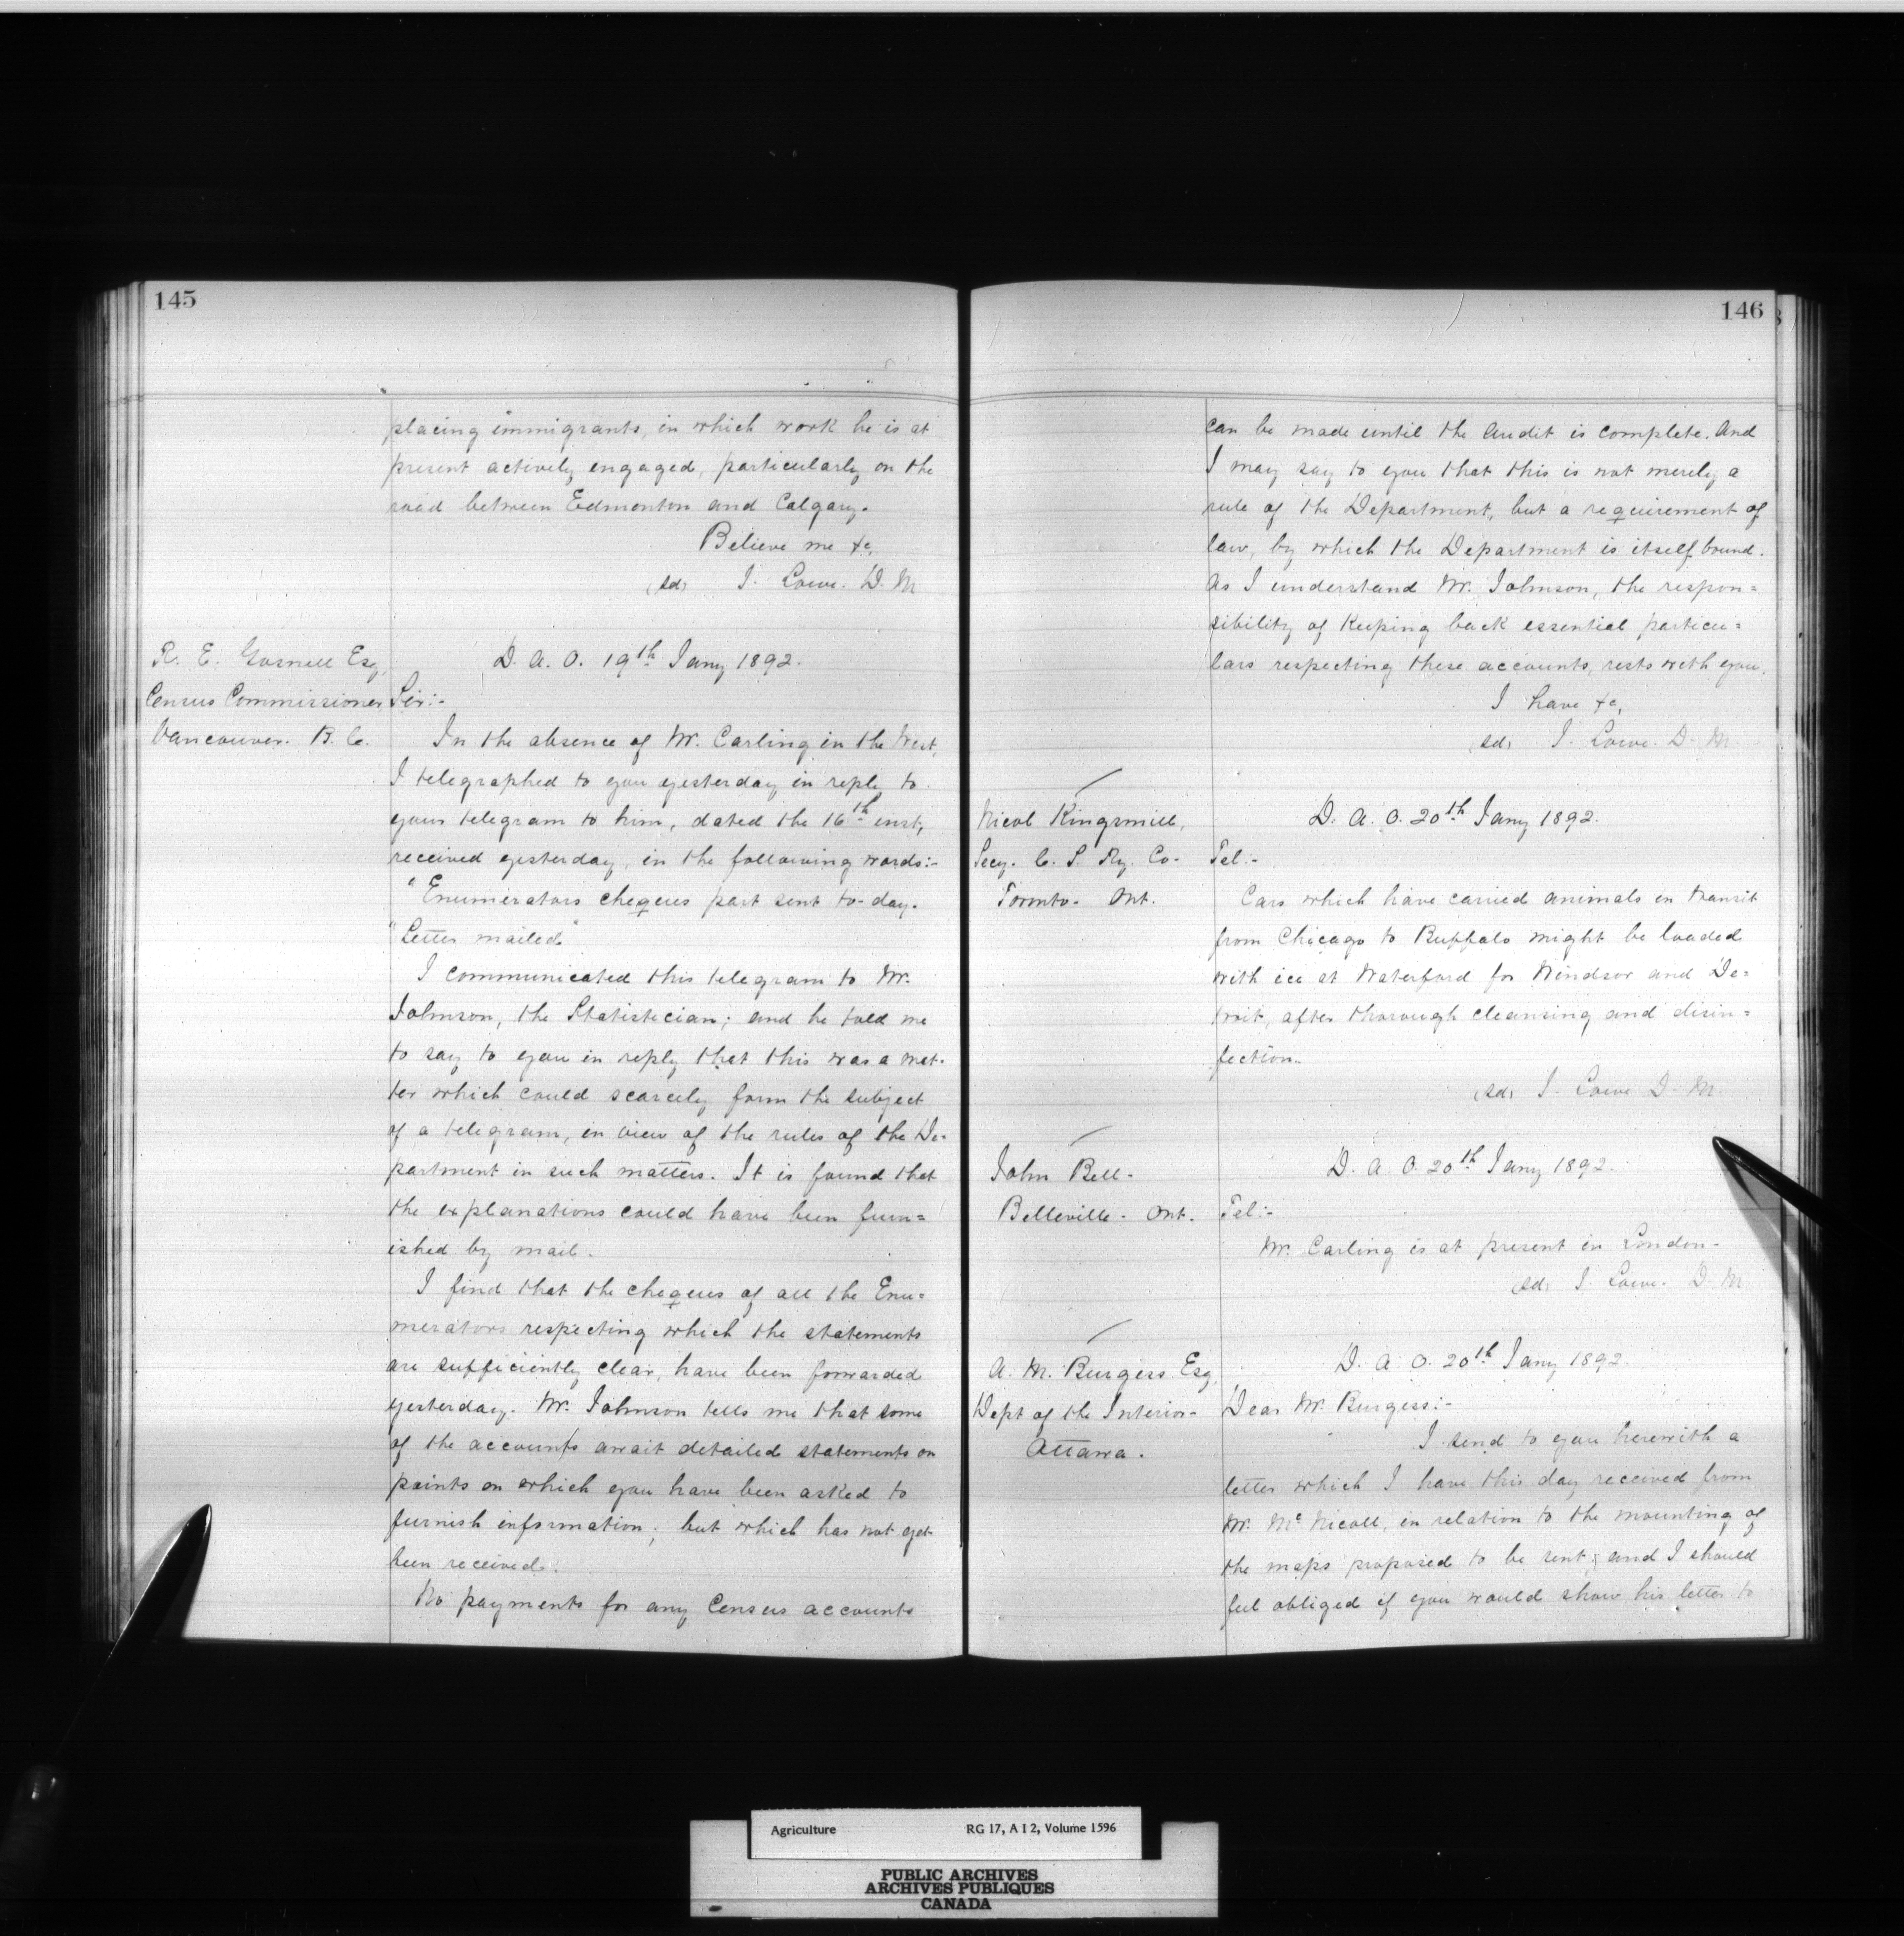 145
placing immigrants, in which work he is at
present actively engaged, particularly on the
road between Edmonton and Calgary.
Believe me &c,
(sd) J. Lowe. D. M
R. E. Gosnell Esq,
Census Commissioner
Vancouver. B. C.
D. A. O. 19th Jany 1892.
Sir:-
In the absence of Mr. Carling in the West,
I telegraphed to you yesterday in reply to
your telegram to him, dated the 16th inst,
received yesterday, in the following words:-
"Enumerators cheques part sent to-day.
"Letter mailed"
I communicated this telegram to Mr.
Johnson, the Statistician; and he told me
to say to you in reply that this was a mat-
ter which could scarcely form the subject
of a telegram, in view of the rules of the De-
partment in such matters. It is found that
the explanations could have been furn=
ished by mail.
I find that the cheques of all the Enu=
merators respecting which the statements
are sufficiently clear, have been forwarded
yesterday. Mr. Johnson tells me that some
of the accounts await detailed statements on
points on which you have been asked to
furnish information; but which has not yet
been received.
No payments for any Census accounts
146
can be made until the audit is complete. And
I may say to you that this is not merely a
rule of the Department, but a requirement of
law, by which the Department is itself bound.
As I understand Mr. Johnson, the respon=
sibility of keeping back essential particu=
lars respecting these accounts, rests with you.
I have &c,
(sd) J. Lowe. D. M.
Nicol Kingsmill,
Secy. C. S. Ry. Co-
Toronto- Ont.
D. A. O. 20th Jany 1892.
Tel:-
Cars which have carried animals in transit
from Chicago to Buffalo might be loaded
with ice at Waterford for Windsor and De=
troit, after thorough cleansing and disin=
fection.
(sd) J. Lowe D. M.
John Bell-
Belleville- Ont.
D. A. O. 20th Jany 1892.
Tel:-
Mr. Carling is at present in London-
(sd) J. Lowe- D. M
A. M. Burgess Esq,
Dept of the Interior-
Ottawa.
D. A. O. 20th Jany 1892
Dear Mr. Burgess:-
I send to you herewith a
letter which I have this day received from
Mr. McNicoll, in relation to the mounting of
the maps proposed to be sent; and I should
feel obliged if you would show his letter to
Agriculture RG 17, A I 2, Volume 1596
PUBLIC ARCHIVES
ARCHIVES PUBLIQUES
CANADA